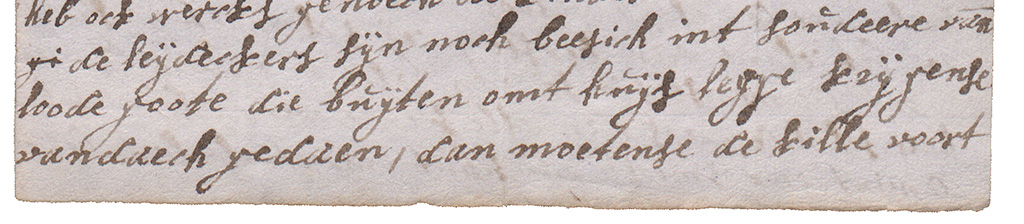 heb ock wercks genoech
de leydeckers syn noch beesich int soudeere van
loode goote die buyten omt huys legge krygense
vandaech gedaen, dan moetense de kille voort